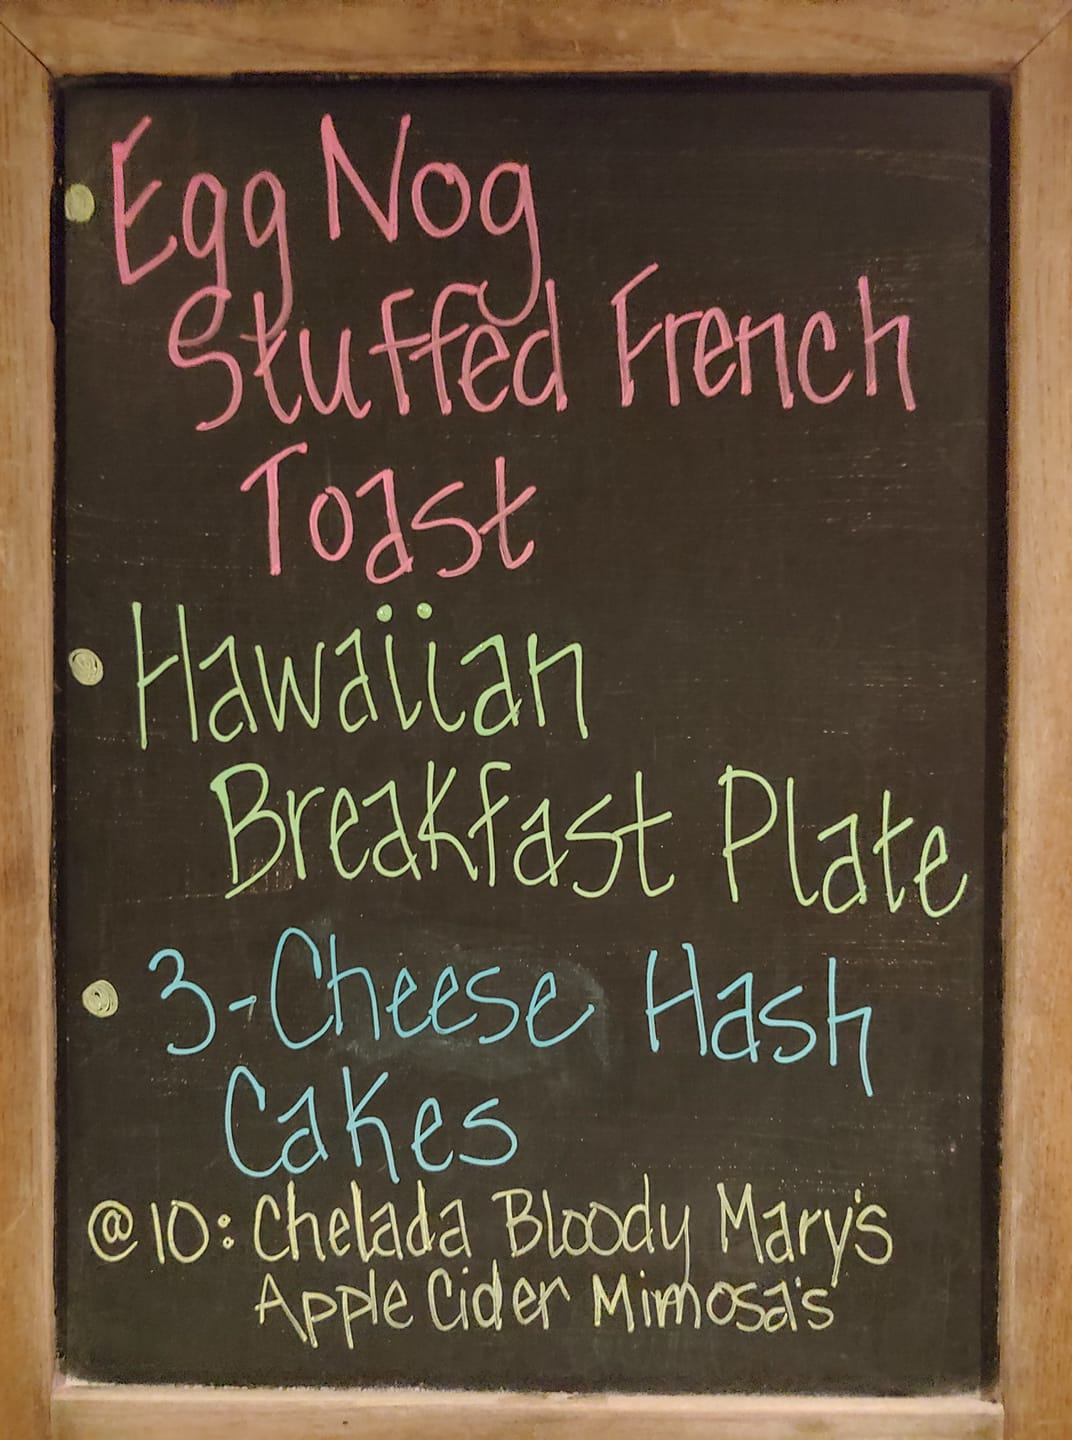 • Egg Nog
Stuffed French
Toast
• Hawaiian
Breakfast Plate
• 3-Cheese Hash
Cakes
@10: Chelada Bloody Mary's
Apple Cider Mimosa's